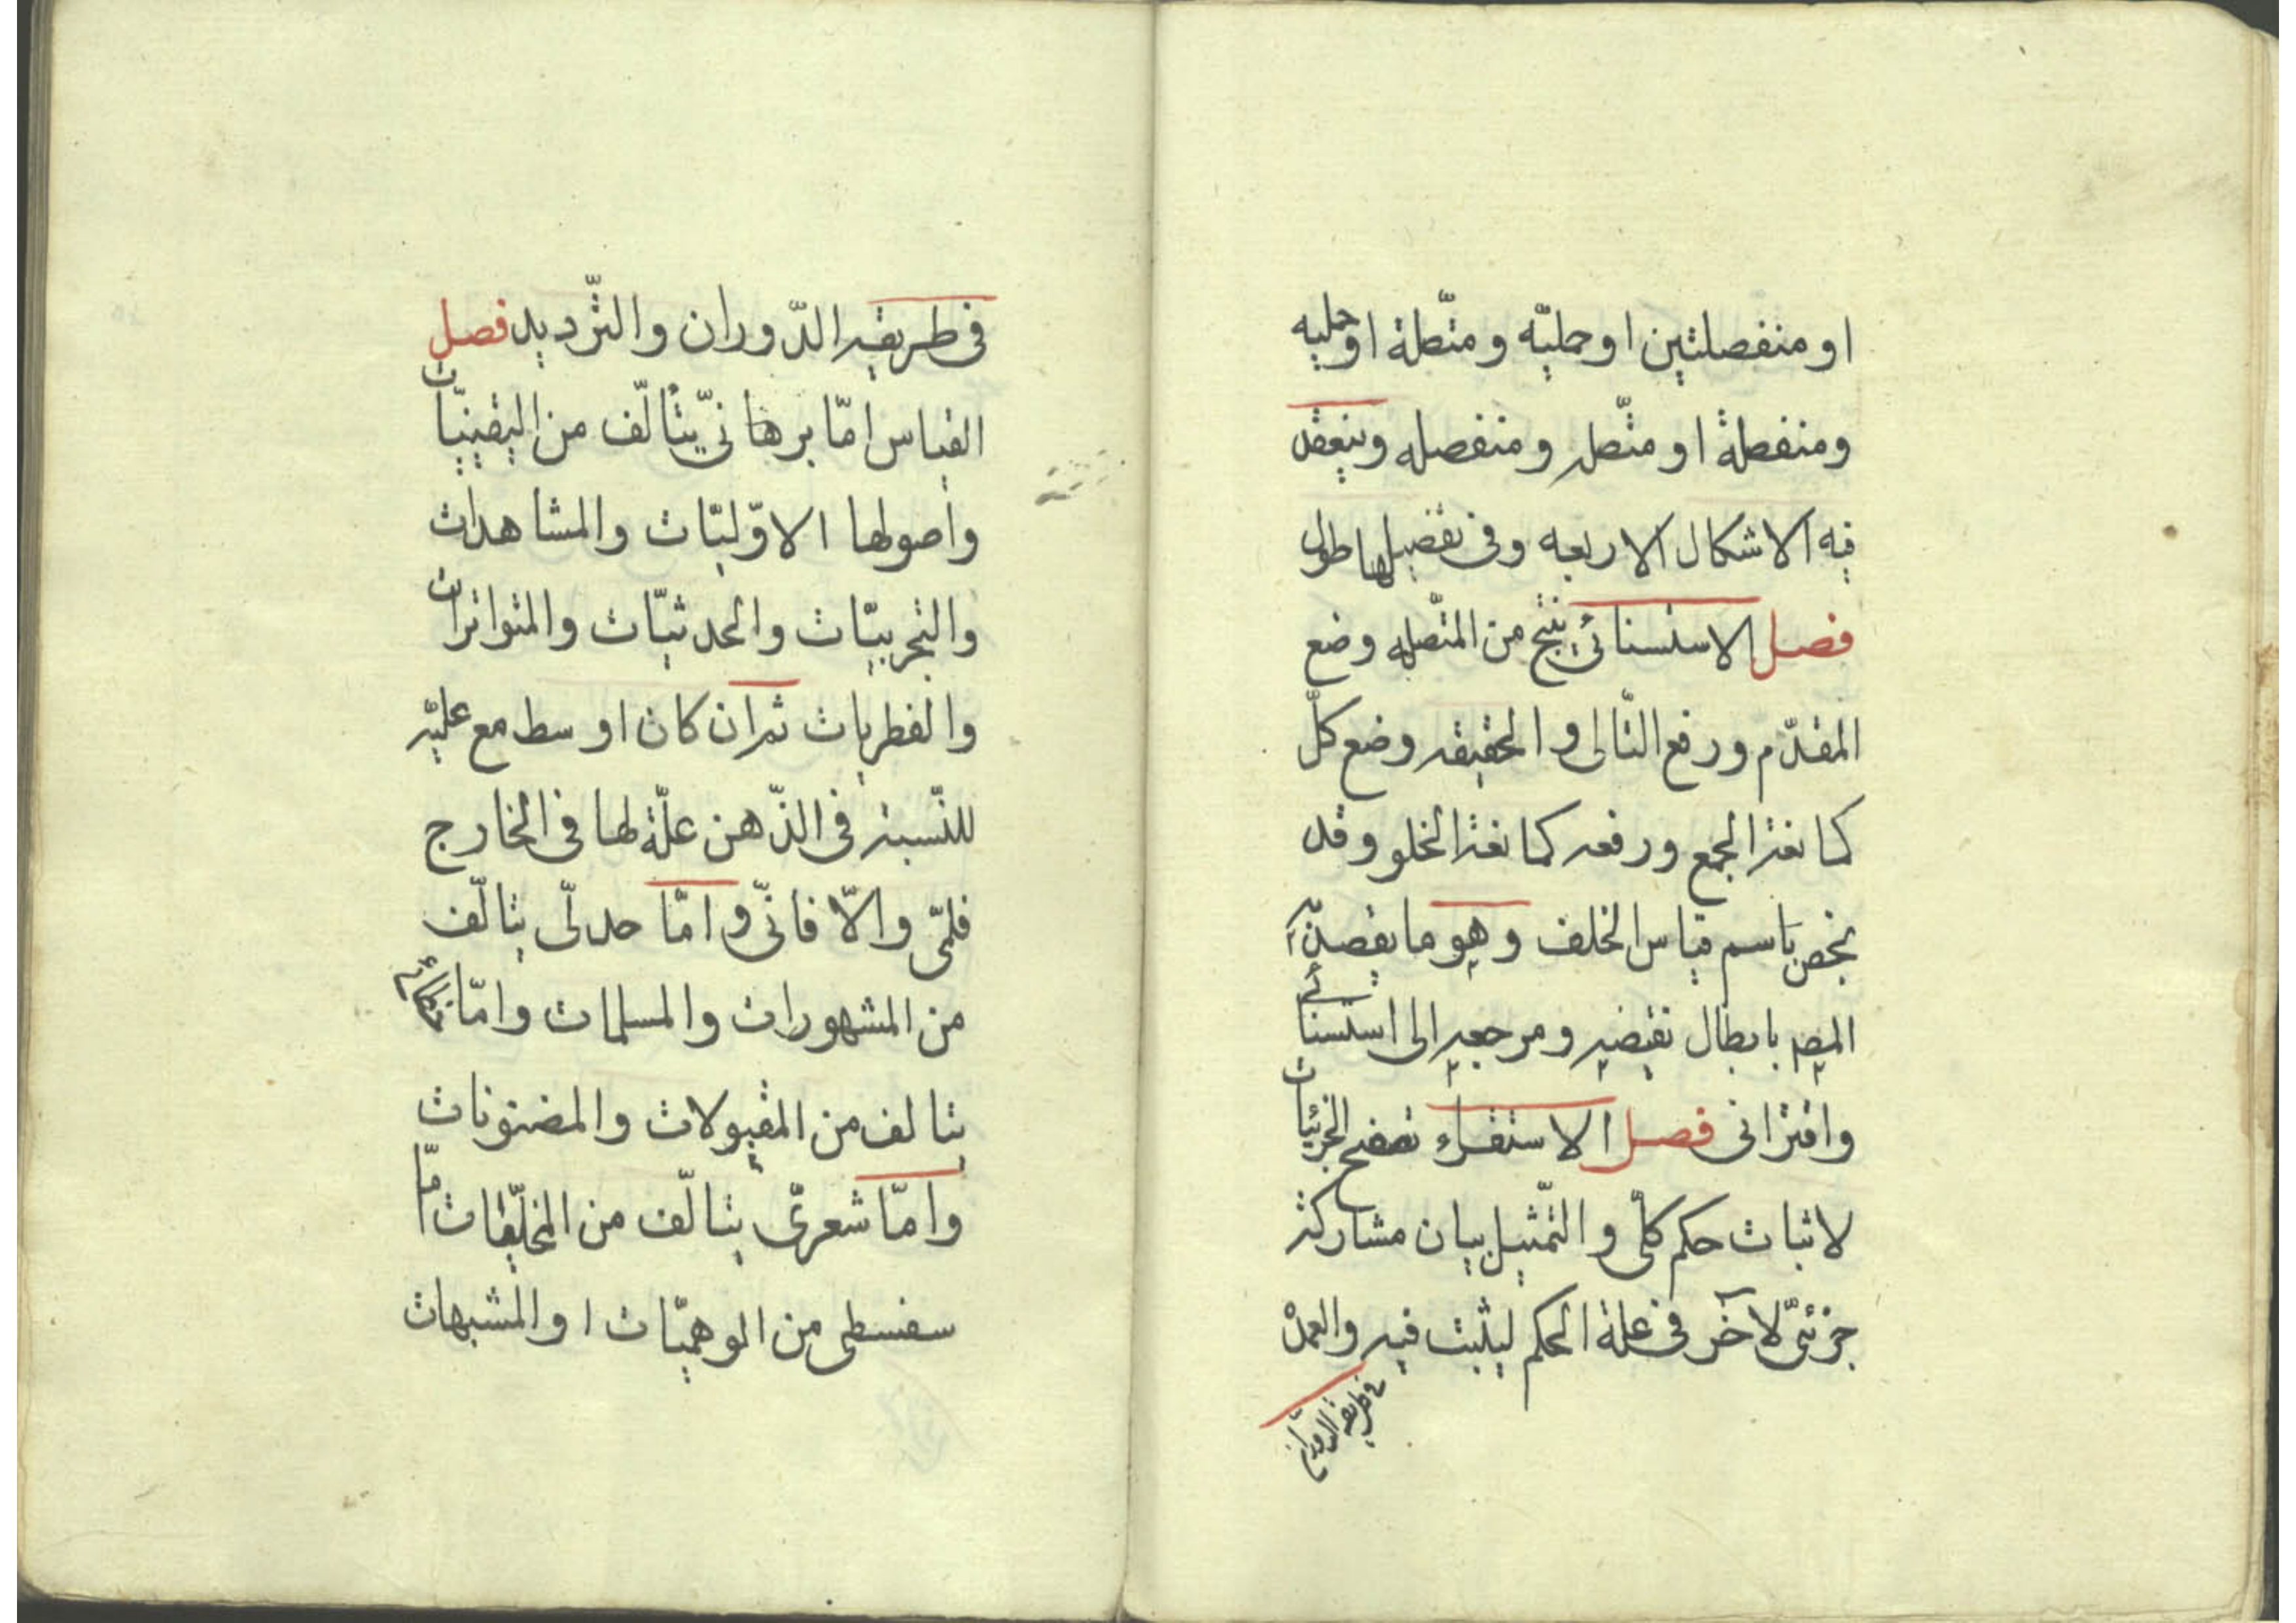 او منفصلتين او حمليّه ومتّصلة او حمليه
ومنفصلة او متّصله ومنفصله وينعقد
فيه الاشكال الاربعه وفى تفصيلها طول
فصل الاستسنائى ينتج من المتّصله وضع
المقدّم ورفع التّالى والحقيقه وضع كلّ
كمانعة الجمع ورفعه كمانعة الخلو وقد
يخص باسم قياس الخلف وهو ما يقصد
المط بابطال نقيضه ومرجعه الى استسنائى
واقترانى فصل الاستقراء تصفح الجزئيات
لاثبات حكم كلّى والتّمثيل بيان مشاركة
جزئىّ لآخر فى علة الحكم ليثبت فيه والعمدة
فى طريقه الدوران
فى طريقه الدّوران والتّرديد فصل
القياس امّا برهانىّ يتألّف من اليقينيّات
واصولها الاوّليّات والمشاهدات
والتجربيّات والحدثيّات والمتواترات
والفطريات ثم ان كان اوسط مع عليّته
للنّسبة فى الذّهن علّة لها فى الخارج
فلمّى والّا فانّى وامّا جدلّى يتالّف
من المشهورات والمسلمات وامّا
يتالف من المقبولات والمضنونات
وامّا شعرىّ يتالّف من المخلّيات امّا
سفسطى من الوهميّات او المشبهات